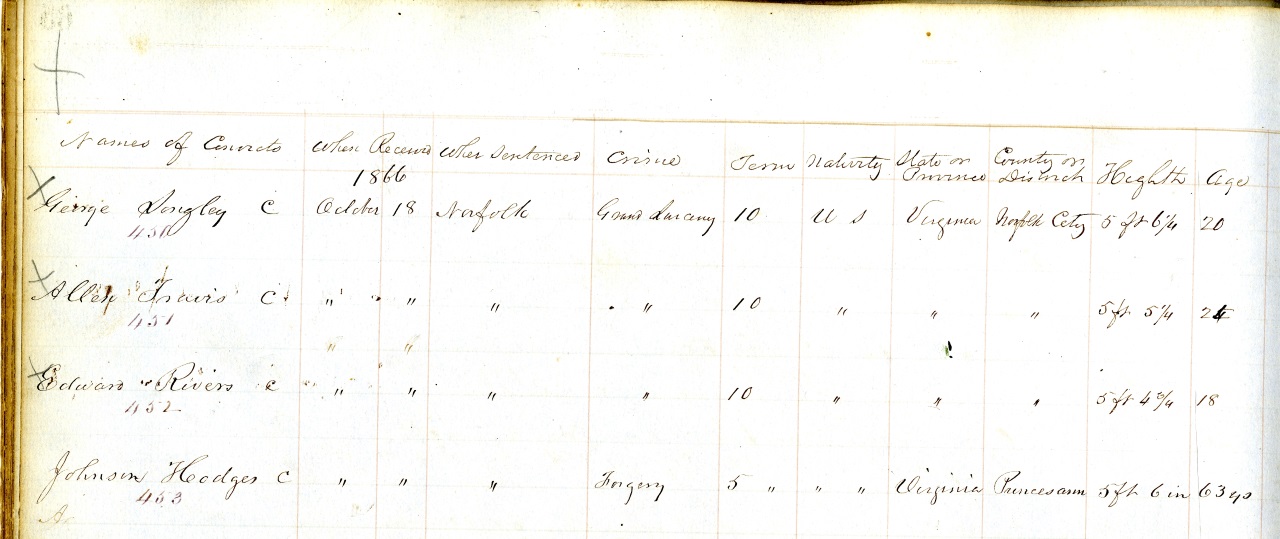 Names of Convicts When Received Where Sentenced Crime Term Nativity State or Province County or District Heighth Age
1866
George Longley C October 18 Norfolk Grand Larceny 10 U S Virginia Norfolk City 5 ft 6 1/4 20
450
Albert Travis C " " " " 10 " " " 5 ft 5 1/4 24
451
" "
Edward Rivers C " " " " 10 " " " 5 ft 4 3/4 18
452
Johnson Hodges C " " " Forgery 5 " " " Virginia Princesann 5 ft 6 in 63 ys
453